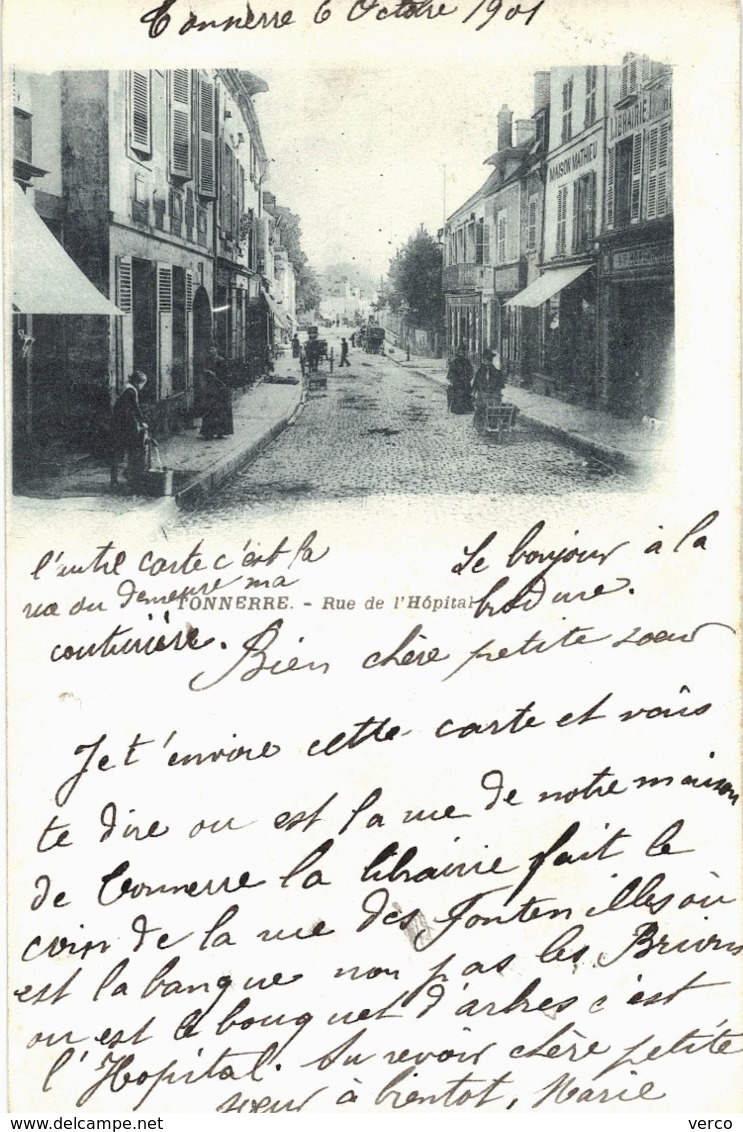 Tonnerre 6 Octobre 1901
MAISON MATHIEU
LIBRAIRIE
l'autre carte c'est la
rue ou demeure ma
couturière.
Le bonjour à la
brodure.
TONNERRE. - Rue de l'Hôpital
Bien chère petite soeur
Je t'envoie cette carte et vais
te dire ou est la rue de notre maison
de Tonnerre la librairie fait le
coin de la rue des Fontenilles où
est la banque non pas les Brivois
ou est le bouquet d'arbres c'est
l'Hopital. Au revoir chère petite
soeur à bientot, Marie
verco